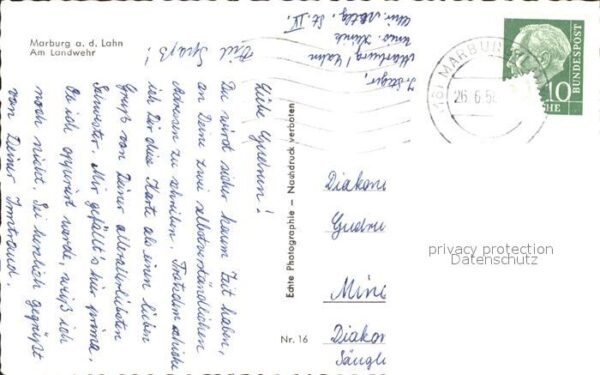 Marburg a. d. Lahn
Am Landwehr
Viel Spaß!
Liebe Gudrun!
Du wirst sicher kaum Zeit haben,
an Deine zwei selbstverständlichen
Adressen zu schreiben. Trotzdem schicke
ich Dir diese Karte als einen lieben
Gruß von Deiner allerallerliebsten
Schwester. Mir gefällt's hier prima.
Ob ich operiert werde, weiß ich
noch nicht. Sei herzlich gegrüßt
von Deiner Irmtraud.
Marburg/Lahn
Univ. Klinik
St. IV.
Echte Photographie – Nachdruck verboten
Nr. 16
(16) MARBURG
26.6.5
DEUTSCHE
BUNDESPOST
10
Diakon
Gudru
Mind
Diakon
Säugl
privacy protection
Datenschutz